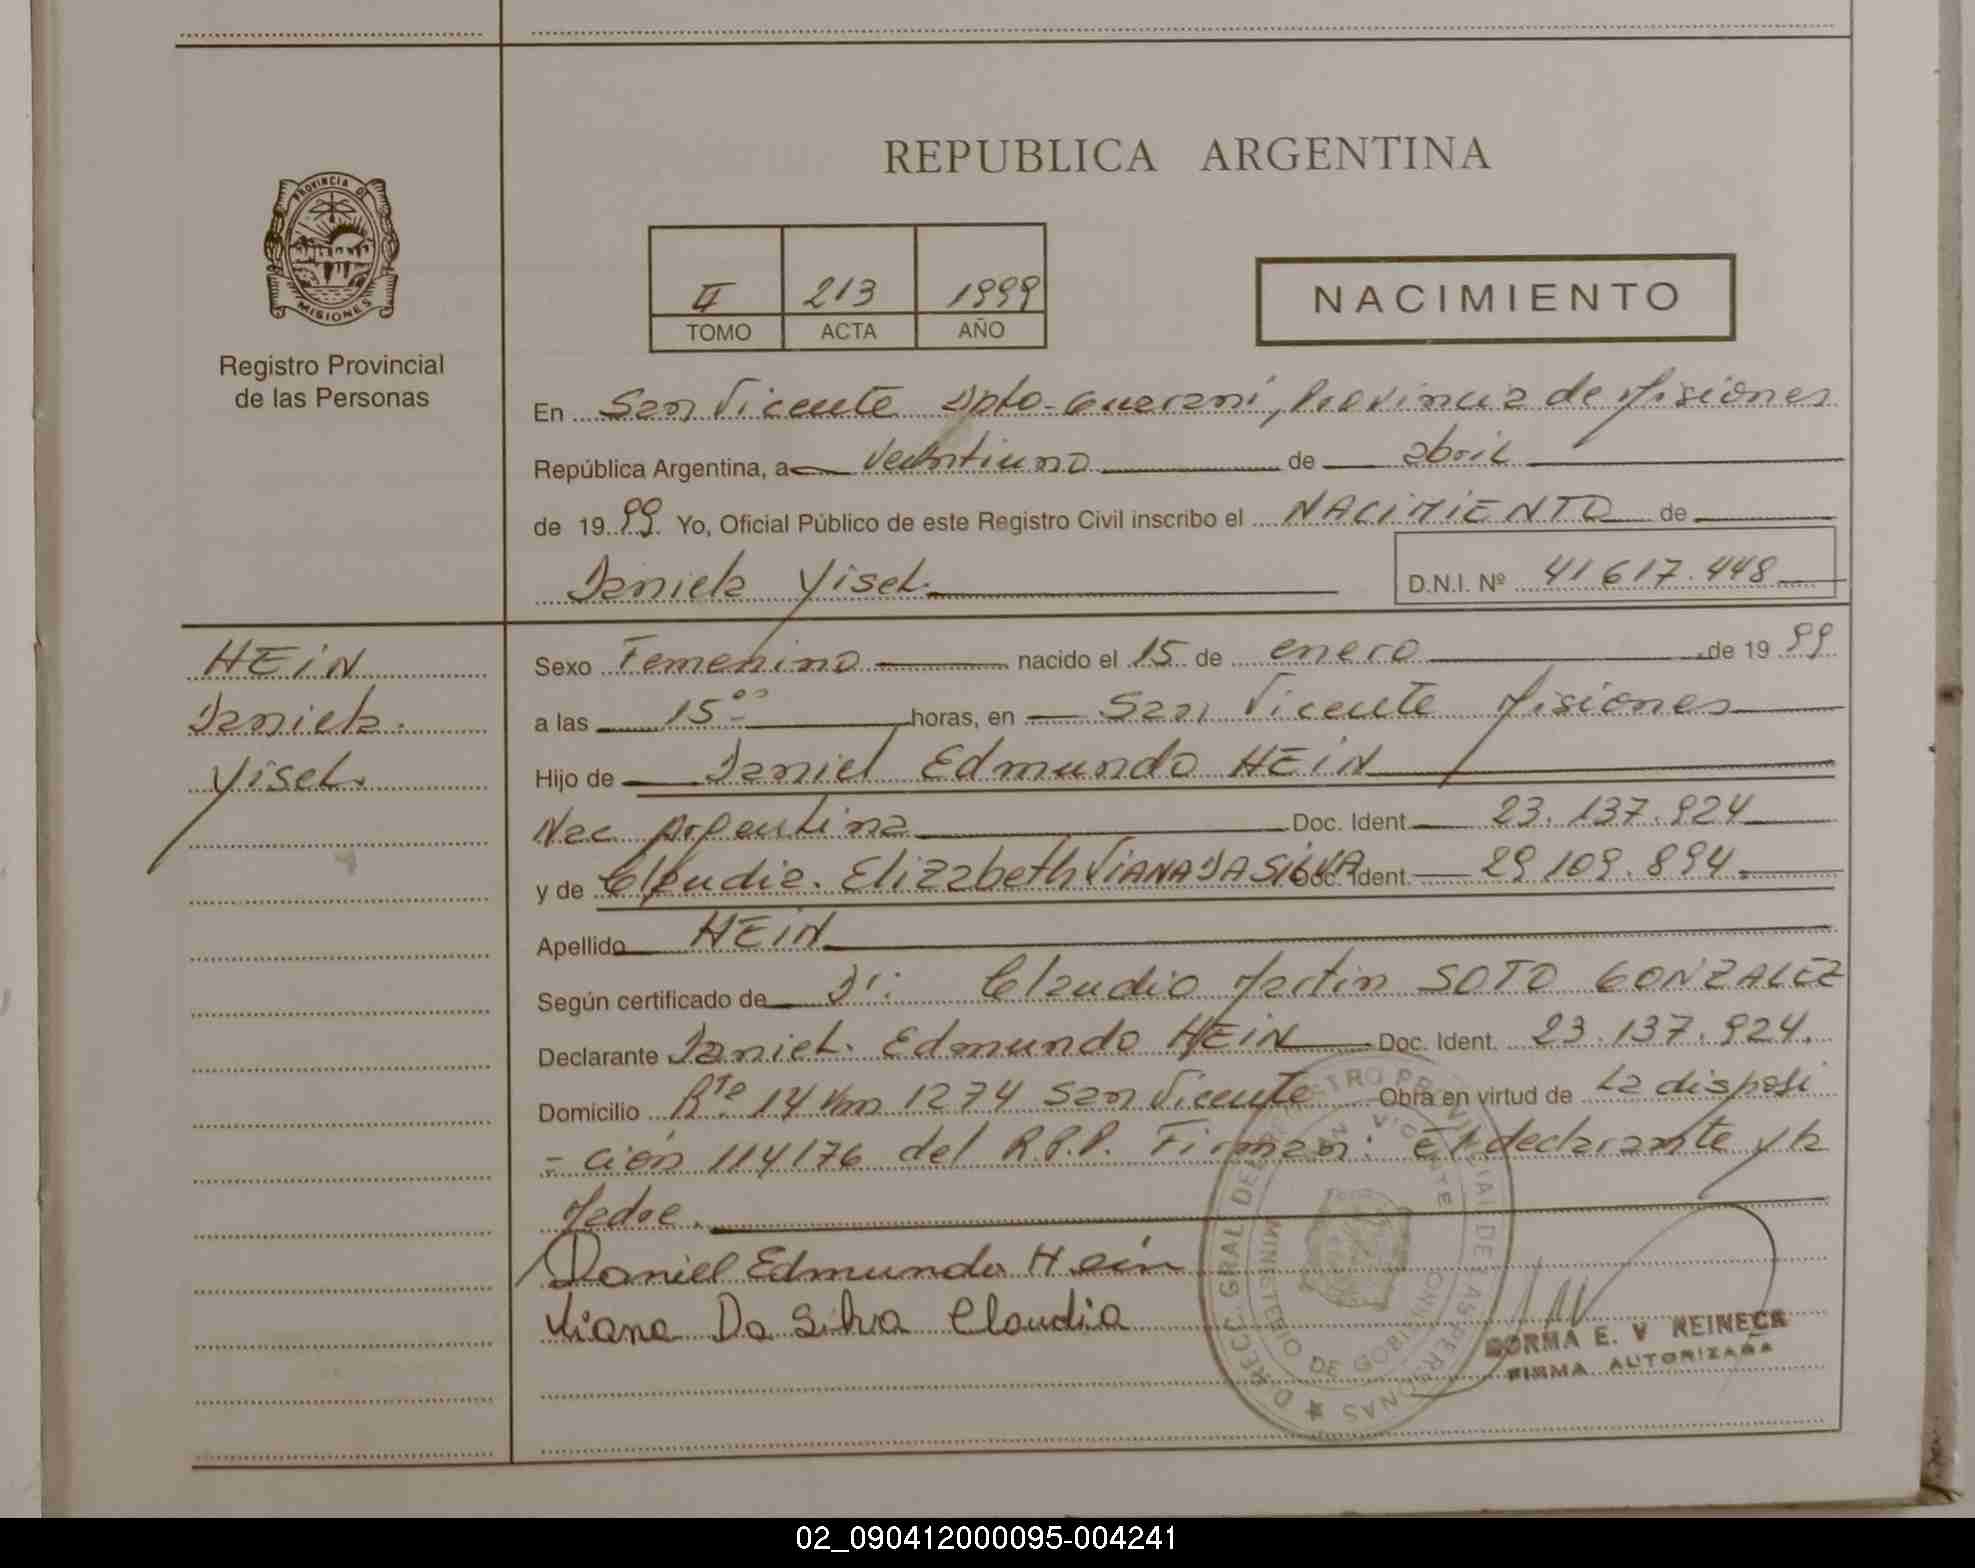 REPUBLICA ARGENTINA
PROVINCIA DE
MISIONES
Registro Provincial
de las Personas
II 213 1999
TOMO ACTA AÑO
NACIMIENTO
En San Vicente Dpto. Guaraní, Provincia de Misiones
República Argentina, a Veintiuno de abril
de 1999. Yo, Oficial Público de este Registro Civil inscribo el NACIMIENTO de
Daniela Yisel. D.N.I. Nº 41617.448
HEIN
Daniela.
Yisel.
Sexo Femenino nacido el 15 de enero de 1999
a las 15°° horas, en San Vicente Misiones
Hijo de Daniel Edmundo HEIN
Nac. Argentina Doc. Ident. 23.137.924
y de Claudia. Elizabeth VIANA DA SILVA Doc. Ident. 29109.894.
Apellido HEIN
Según certificado de Dr: Claudio Martin SOTO GONZALEZ
Declarante Daniel. Edmundo HEIN Doc. Ident. 23.137.924.
Domicilio Rta 14 Km 1274 San Vicente Obra en virtud de la disposi
- ción 114176 del R.P.P. Firman: El declarante y la
Madre.
Daniel Edmundo Hein
Viana Da Silva Claudia
DIRECC. GRAL DEL REGISTRO PROVINCIAL DE LAS PERSONAS
SAN VICENTE
MINISTERIO DE GOBIERNO
NORMA E. V REINECK
FIRMA AUTORIZADA
02_090412000095-004241